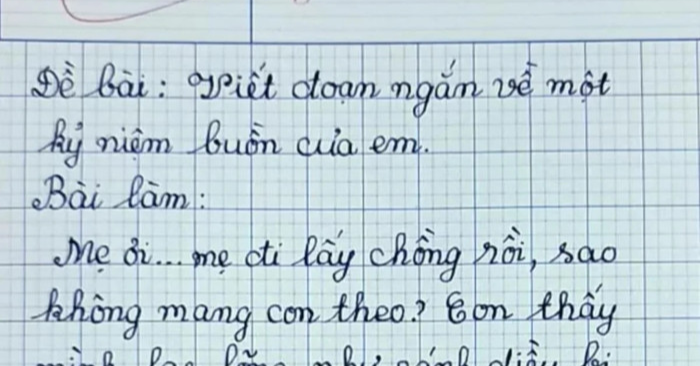 Đề bài: Viết đoạn ngắn về một
kỷ niệm buồn của em.
Bài làm:
Mẹ ơi... mẹ đi lấy chồng rồi, sao
không mang con theo? Con thấy
mình lạc lõng như cánh diều bị